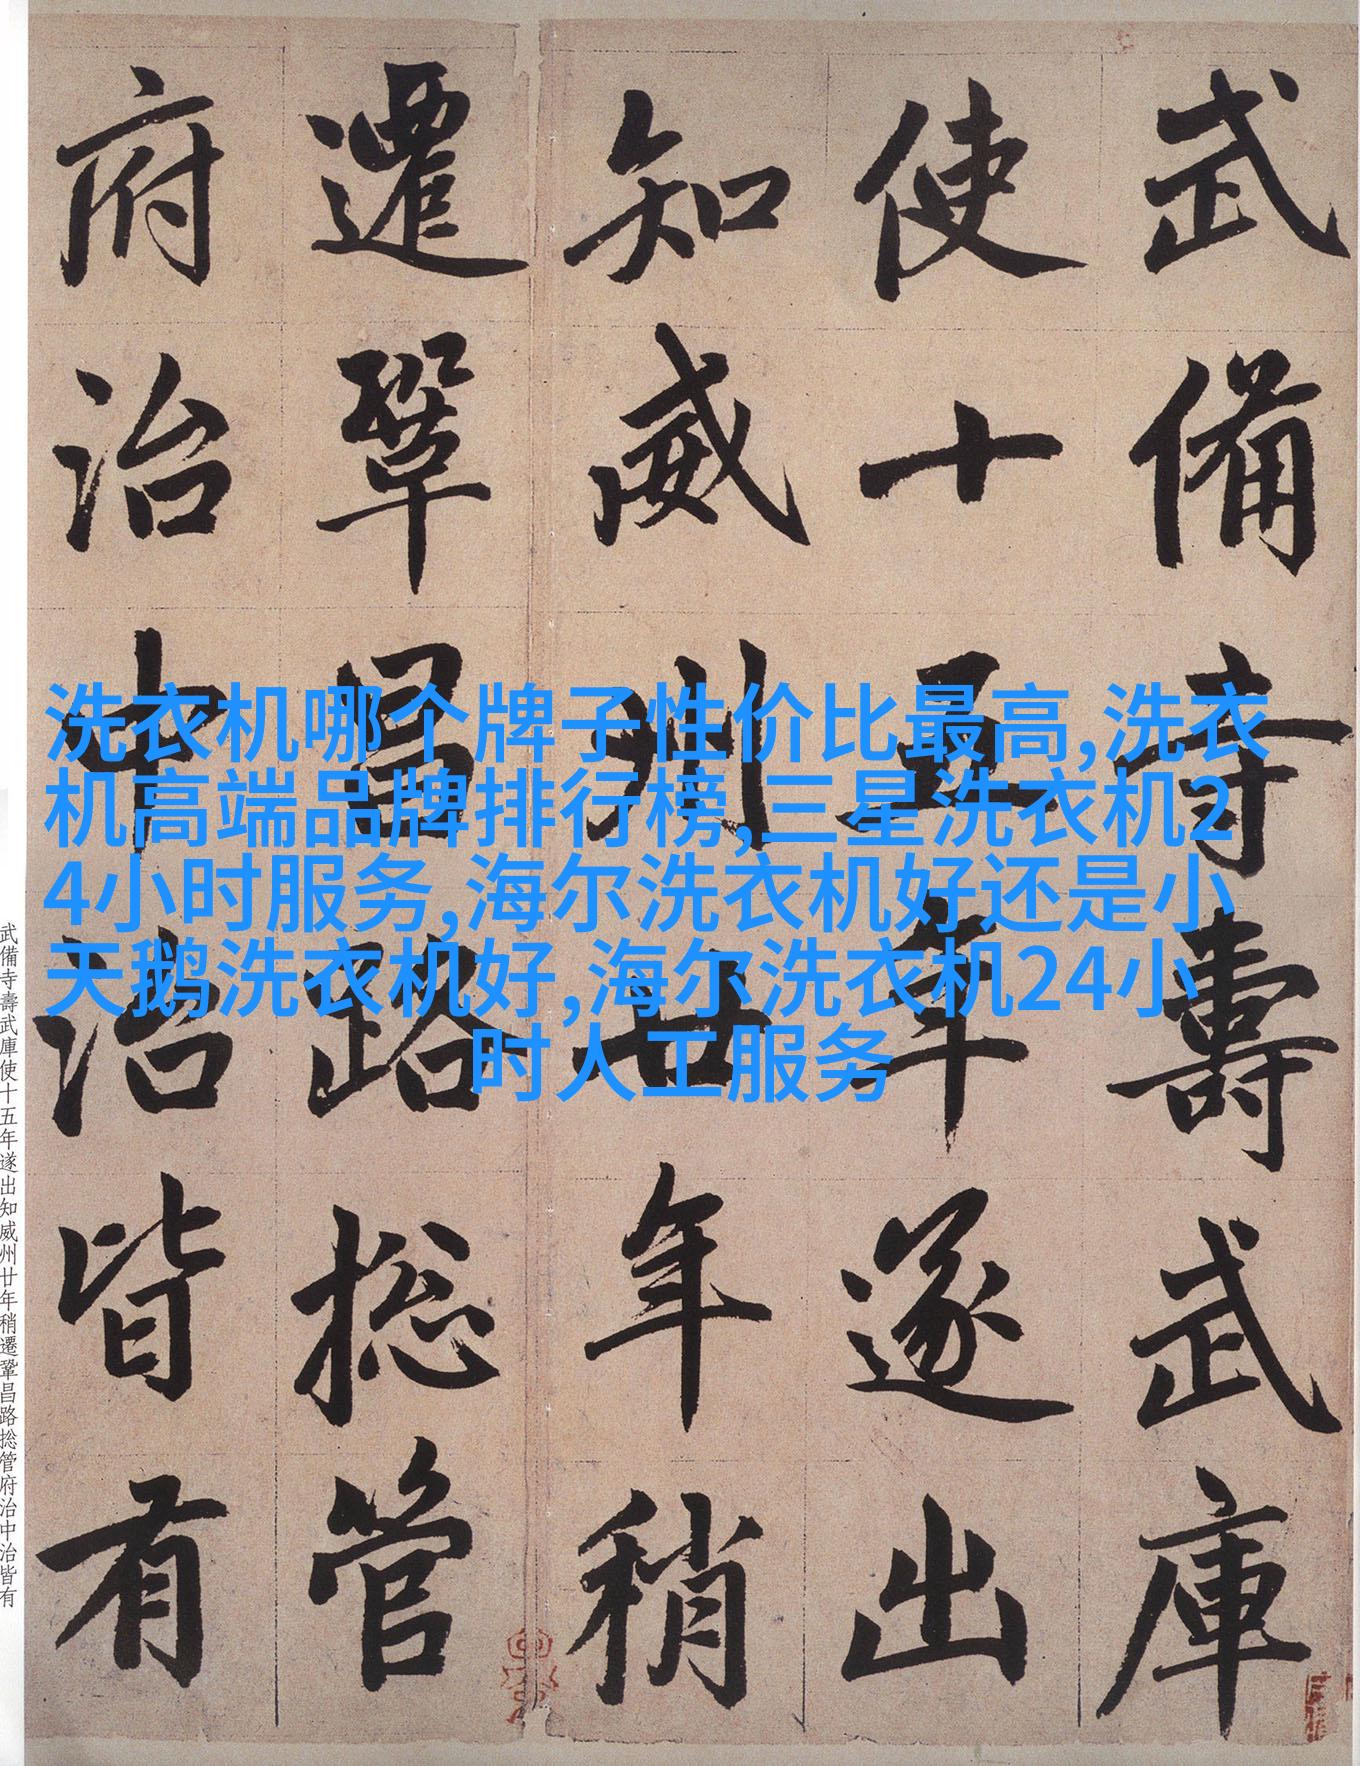 武備寺壽武庫
使十五年遂出
知威州廿年稍
遷鞏昌路捴管
府治中治皆有
洗衣机哪个牌子性价比最高,洗衣
机高端品牌排行榜,三星洗衣机2
4小时服务,海尔洗衣机好还是小
天鹅洗衣机好,海尔洗衣机24小
时人工服务
武備寺壽武庫使十五年遂出知威州廿年稍遷鞏昌路捴管府治中治皆有